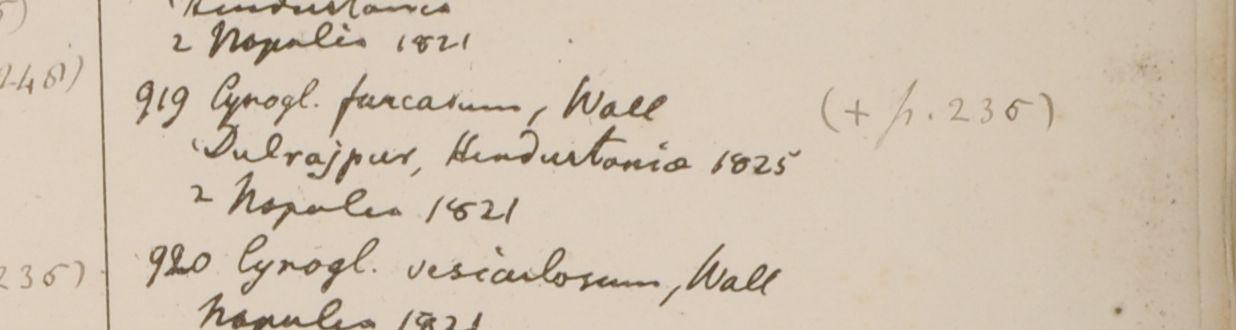 Hindustania
2 Napalia 1821
919 Cynogl. furcatum, Wall (+ p. 236)
Dulrajpur, Hindustania 1825
2 Napalia 1821
920 Cynogl. vesiculosum, Wall
236)
Napalia 1821